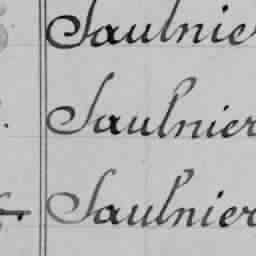 Saulnie
Saulnier
Saulnier